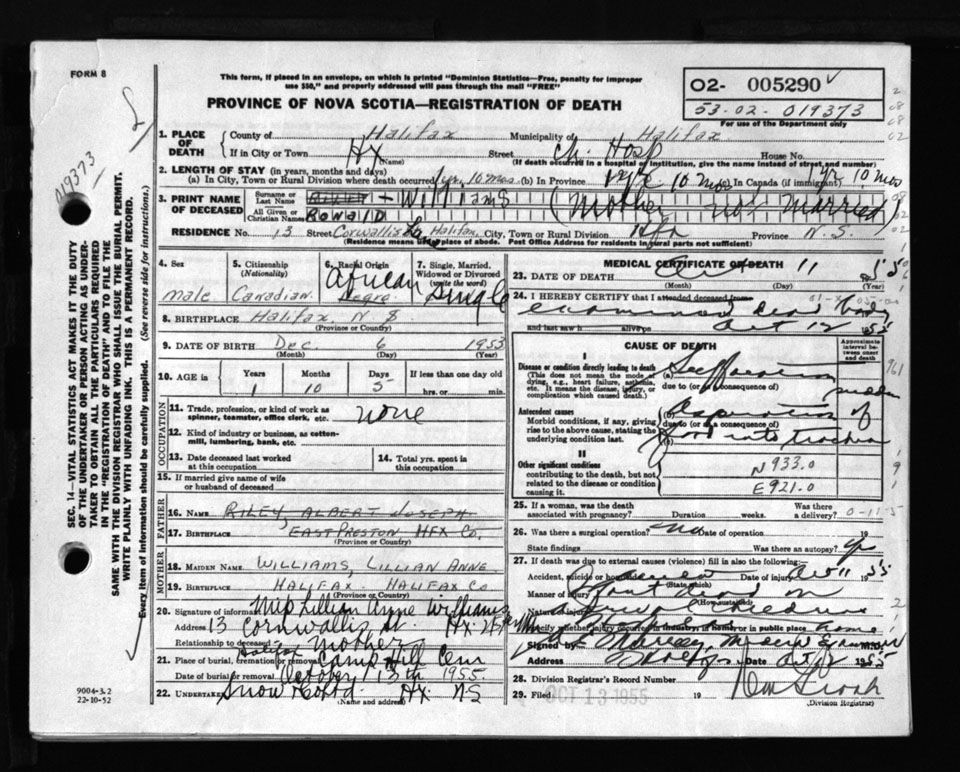 FORM 8
This form, if placed in an envelope, on which is printed "Dominion Statistics—Free, penalty for improper
use $50," and properly addressed will pass through the mail "FREE"
PROVINCE OF NOVA SCOTIA—REGISTRATION OF DEATH
O2- 005290
53-02-019373
For use of the Department only
019373
1. PLACE OF DEATH
County of Halifax Municipality of Halifax
If in City or Town Hx (Name) Street Ch. Hosp House No.
(If death occurred in a hospital or institution, give the name instead of street and number)
2. LENGTH OF STAY (in years, months and days)
(a) In City, Town or Rural Division where death occurred 1 yr. 10 mos (b) In Province 1 yr 10 mos In Canada (if immigrant) 1 yr 10 mos
3. PRINT NAME OF DECEASED
Surname or Last Name - Williams (Mother not married)
All Given or Christian Names RONALD
RESIDENCE No. 13 Street Corwallis Halifax, City, Town or Rural Division Hfx Province N.S.
(Residence means usual place of abode. Post Office Address for residents in rural parts not sufficient)
4. Sex
male
5. Citizenship (Nationality)
Canadian
6. Racial Origin
African
Negro
7. Single, Married, Widowed or Divorced (write the word)
Single
8. BIRTHPLACE Halifax, N S
(Province or Country)
9. DATE OF BIRTH Dec. 6 1953
(Month) (Day) (Year)
10. AGE in
Years Months Days If less than one day old
1 10 5 hrs. or min.
OCCUPATION
11. Trade, profession, or kind of work as spinner, teamster, office clerk, etc. none
12. Kind of industry or business, as cotton-mill, lumbering, bank, etc.
13. Date deceased last worked at this occupation
14. Total yrs. spent in this occupation
15. If married give name of wife or husband of deceased
FATHER
16. NAME RILEY, ALBERT JOSEPH
17. BIRTHPLACE EAST PRESTON HFX Co.
(Province or Country)
MOTHER
18. MAIDEN NAME WILLIAMS, LILLIAN ANNE
19. BIRTHPLACE HALIFAX, HALIFAX CO
(Province or Country)
20. Signature of informant Miss Lillian Anne Williams
Address 13 Cornwallis St. Hx
Relationship to deceased Mother
21. Place of burial, cremation or removal Halifax Camp Hill Cem
Date of burial or removal October 13th 1955.
22. UNDERTAKER Snow Co Ltd Hx NS
(Name and address)
MEDICAL CERTIFICATE OF DEATH
23. DATE OF DEATH Oct 11 1955
(Month) (Day)
24. I HEREBY CERTIFY that I attended deceased from
examined dead body
and last saw h alive on Oct 12 1955
CAUSE OF DEATH
Approximate interval between onset and death
I
Disease or condition directly leading to death
(This does not mean the mode of dying, e.g., heart failure, asthenia, etc. It means the disease, injury, or complication which caused death.)
(a) Suffocation
due to (or as a consequence of) sudden
Antecedent causes
Morbid conditions, if any, giving rise to the above cause, stating the underlying condition last.
(b) Aspiration of
due to (or as a consequence of)
(c) food into trachea
II
Other significant conditions
contributing to the death, but not related to the disease or condition causing it.
N933.0
E921.0
25. If a woman, was the death associated with pregnancy? Duration weeks. Was there a delivery? 0-11-5
26. Was there a surgical operation? no Date of operation 19
State findings Was there an autopsy?
27. If death was due to external causes (violence) fill in also the following:
Accident, suicide or homicide (State which) Date of injury Oct 11 1955
Manner of injury found dead in
(How sustained)
Nature of injury
Specify whether injury occurred in industry, in home, or in public place home
Signed by Medical Examiner M.D.
Address Date Oct 12 1955
28. Division Registrar's Record Number
29. Filed OCT 13 1955 19
(Division Registrar)
SEC. 14—VITAL STATISTICS ACT MAKES IT THE DUTY
OF THE UNDERTAKER OR PERSON ACTING AS UNDER-
TAKER TO OBTAIN ALL THE PARTICULARS REQUIRED
IN THE "REGISTRATION OF DEATH" AND TO FILE THE
SAME WITH THE DIVISION REGISTRAR WHO SHALL ISSUE THE BURIAL PERMIT.
WRITE PLAINLY WITH UNFADING INK. THIS IS A PERMANENT RECORD.
Every item of information should be carefully supplied. (See reverse side for instructions.)
9004-3.2
22-10-52